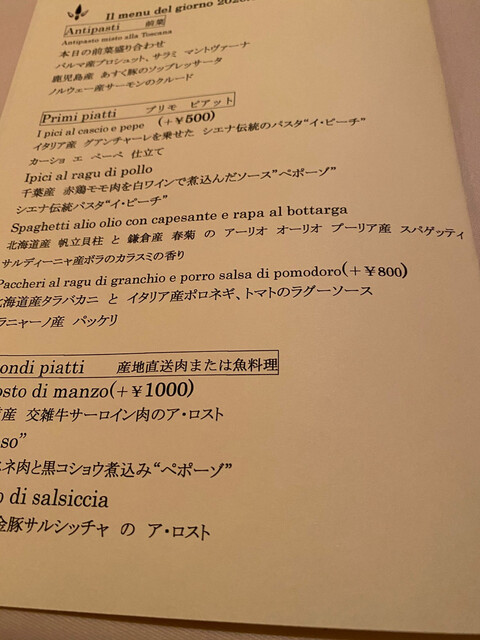 Il menu del giorno 2020.
Antipasti 前菜
Antipasto misto alla Toscana
本日の前菜盛り合わせ
パルマ産プロシュット、サラミ マントヴァーナ
鹿児島産 あすく豚のソップレッサータ
ノルウェー産サーモンのクルード
Primi piatti プリモ ピアット
I pici al cascio e pepe (+¥500)
イタリア産 グアンチャーレを乗せた シエナ伝統のパスタ“イ・ピーチ”
カーショ エ ペーペ 仕立て
Ipici al ragu di pollo
千葉産 赤鶏モモ肉を白ワインで煮込んだソース”ペポーゾ”
シエナ伝統パスタ“イ・ピーチ”
Spaghetti alio olio con capesante e rapa al bottarga
北海道産 帆立貝柱 と 鎌倉産 春菊 の アーリオ オーリオ プーリア産 スパゲッティ
サルディーニャ産ボラのカラスミの香り
Paccheri al ragu di granchio e porro salsa di pomodoro(+¥800)
北海道産タラバカニ と イタリア産ポロネギ、トマトのラグーソース
ラニャーノ産 パッケリ
ondi piatti 産地直送肉または魚料理
osto di manzo(+¥1000)
産 交雑牛サーロイン肉のア・ロスト
so”
ネ肉と黒コショウ煮込み“ペポーゾ”
o di salsiccia
金豚サルシッチャ の ア・ロスト